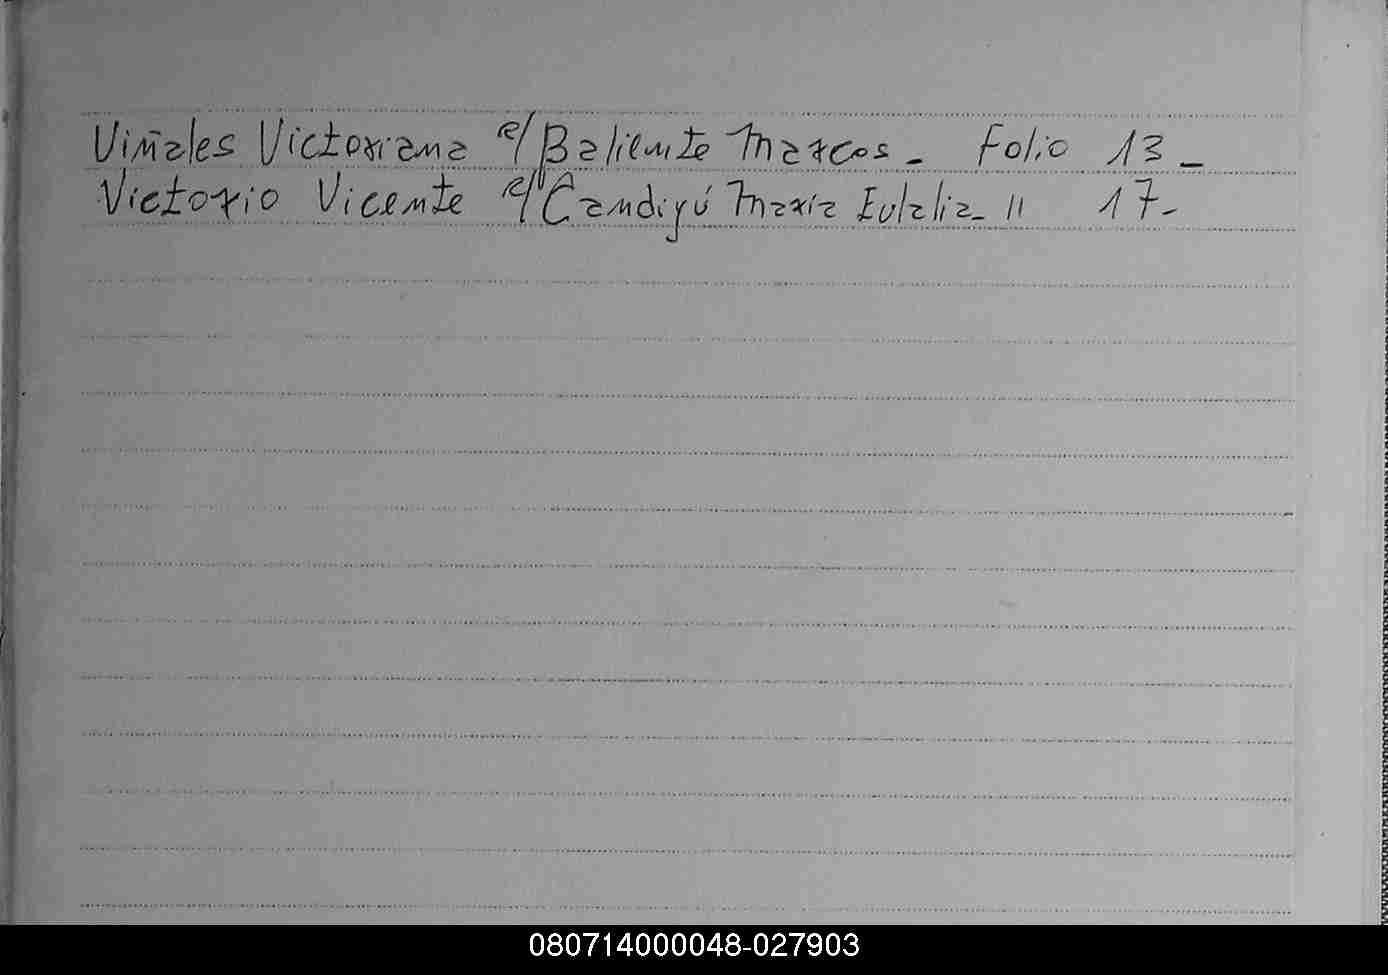 Viñales Victoriana c/ Baliente Marcos - Folio 13 -
Victorio Vicente c/ Candiyú Maria Eulalia - " 17 -
080714000048-027903